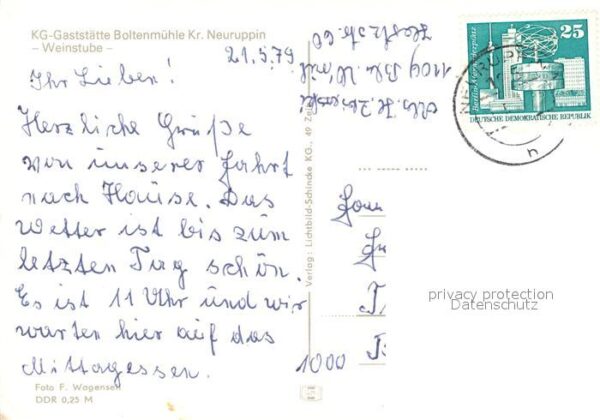 KG-Gaststätte Boltenmühle Kr. Neuruppin
– Weinstube –
21.5.79
Ihr Lieben!
Herzliche Grüße
von unserer Fahrt
nach Hause. Das
Wetter ist bis zum
letzten Tag schön.
Es ist 11 Uhr und wir
warten hier auf das
Mittagessen.
Foto F. Wagensen
DDR 0,25 M
Verlag: Lichtbild-Schincke KG.
1109
1000
25
DEUTSCHE DEMOKRATISCHE REPUBLIK
privacy protection
Datenschutz